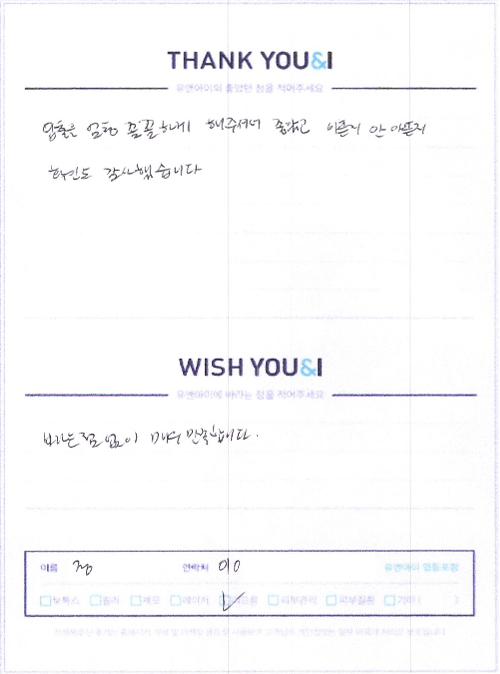 THANK YOU&I
유앤아이의 좋았던 점을 적어주세요
압출은 엄청 꼼꼼하게 해주셔서 좋았고 아픈지 안 아픈지
확인도 감사했습니다
WISH YOU&I
유앤아이에 바라는 점을 적어주세요
바라는점 없이 매우 만족합니다.
이름 정 연락처 010 유앤아이 영등포점
보톡스 필러 제모 레이저 여드름 피부관리 피부질환 기타 ( )